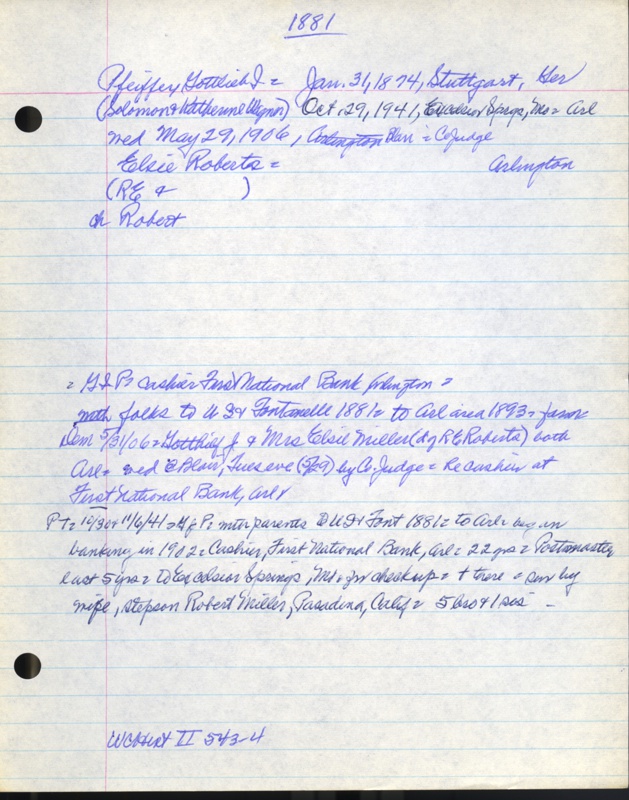 1881
Pfeiffer, Gottlieb J = Jan. 31, 1874, Stuttgart, Ger
(Solomon & Katherine Wagner) Oct. 29, 1941, Excelsior Springs, Mo = Arl
wed May 29, 1906, Arlington Blair = Co Judge
Elsie Roberts = Arlington
(RE & )
ch Robert
= GJP = cashier First National Bank Arlington =
with folks to US & Fontanelle 1881 = to Arl area 1893 = farm
Dem 5/31/06 = Gottlieb J & Mrs Elsie Miller (d of RE Roberts) both
Arl = wed @ Blair, Tues eve (5/29) by Co Judge = He cashier at
First National Bank, Arl
PT = 10/30 & 11/6/41 = GJP = with parents to US & Font 1881 = to Arl = began
banking in 1902 = Cashier, First National Bank, Arl = 22 yrs = Postmaster
last 5 yrs = to Excelsior Springs, Mo = for checkup = + there = surv by
wife, stepson Robert Miller, Pasadena, Calif = 5 bro & 1 sis -
WCoHist II 543-4